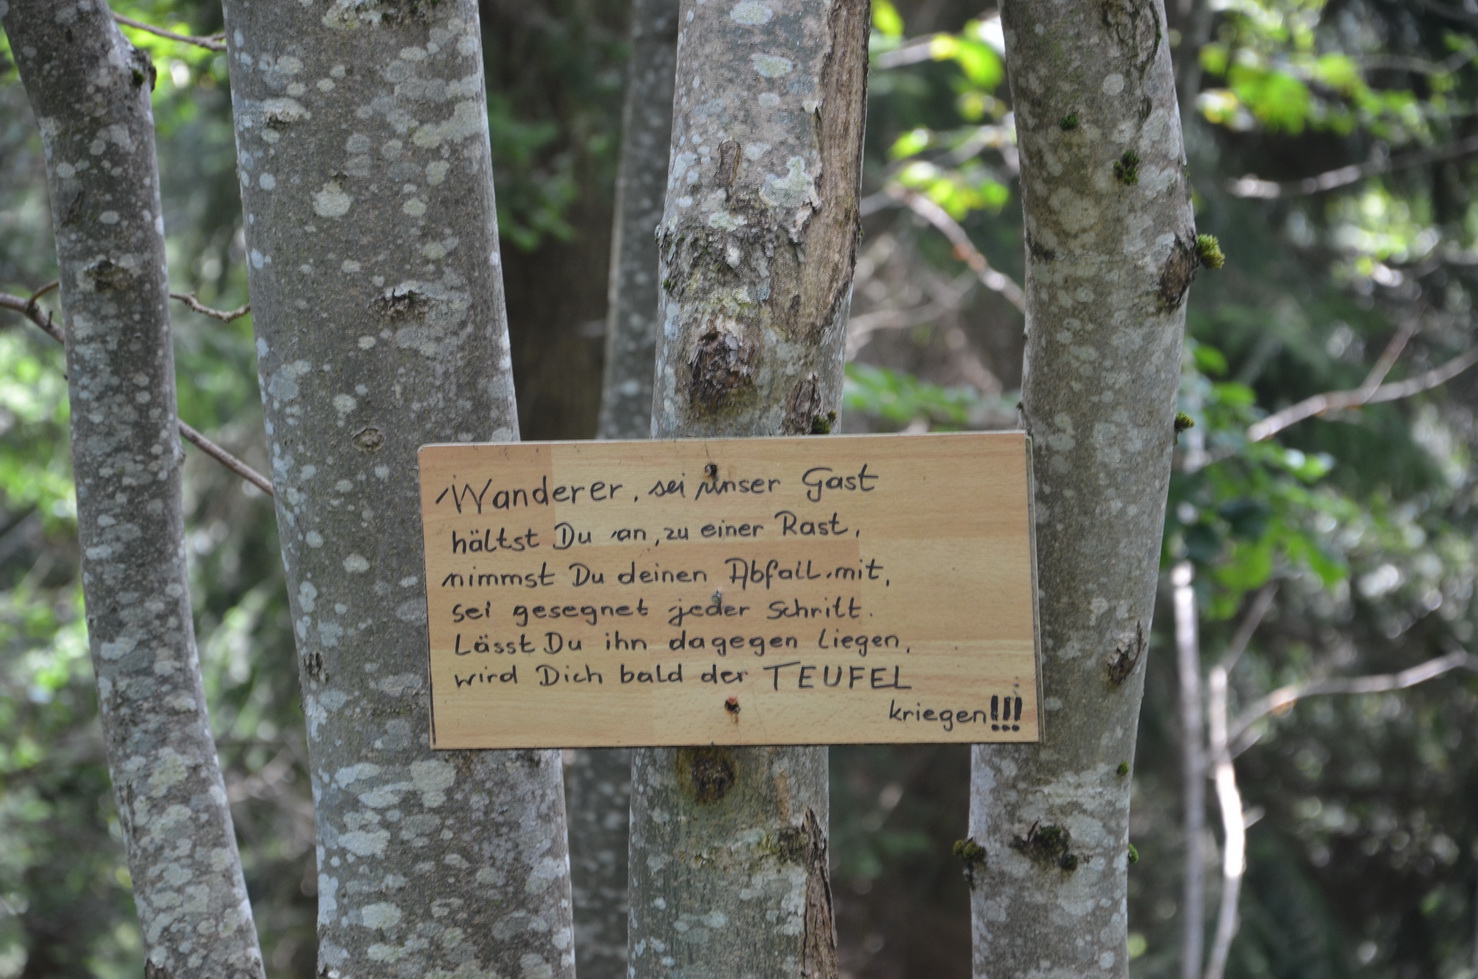 Wanderer, sei unser Gast
hältst Du an, zu einer Rast,
nimmst Du deinen Abfall mit,
sei gesegnet jeder Schritt.
Lässt Du ihn dagegen liegen,
wird Dich bald der TEUFEL
kriegen!!!